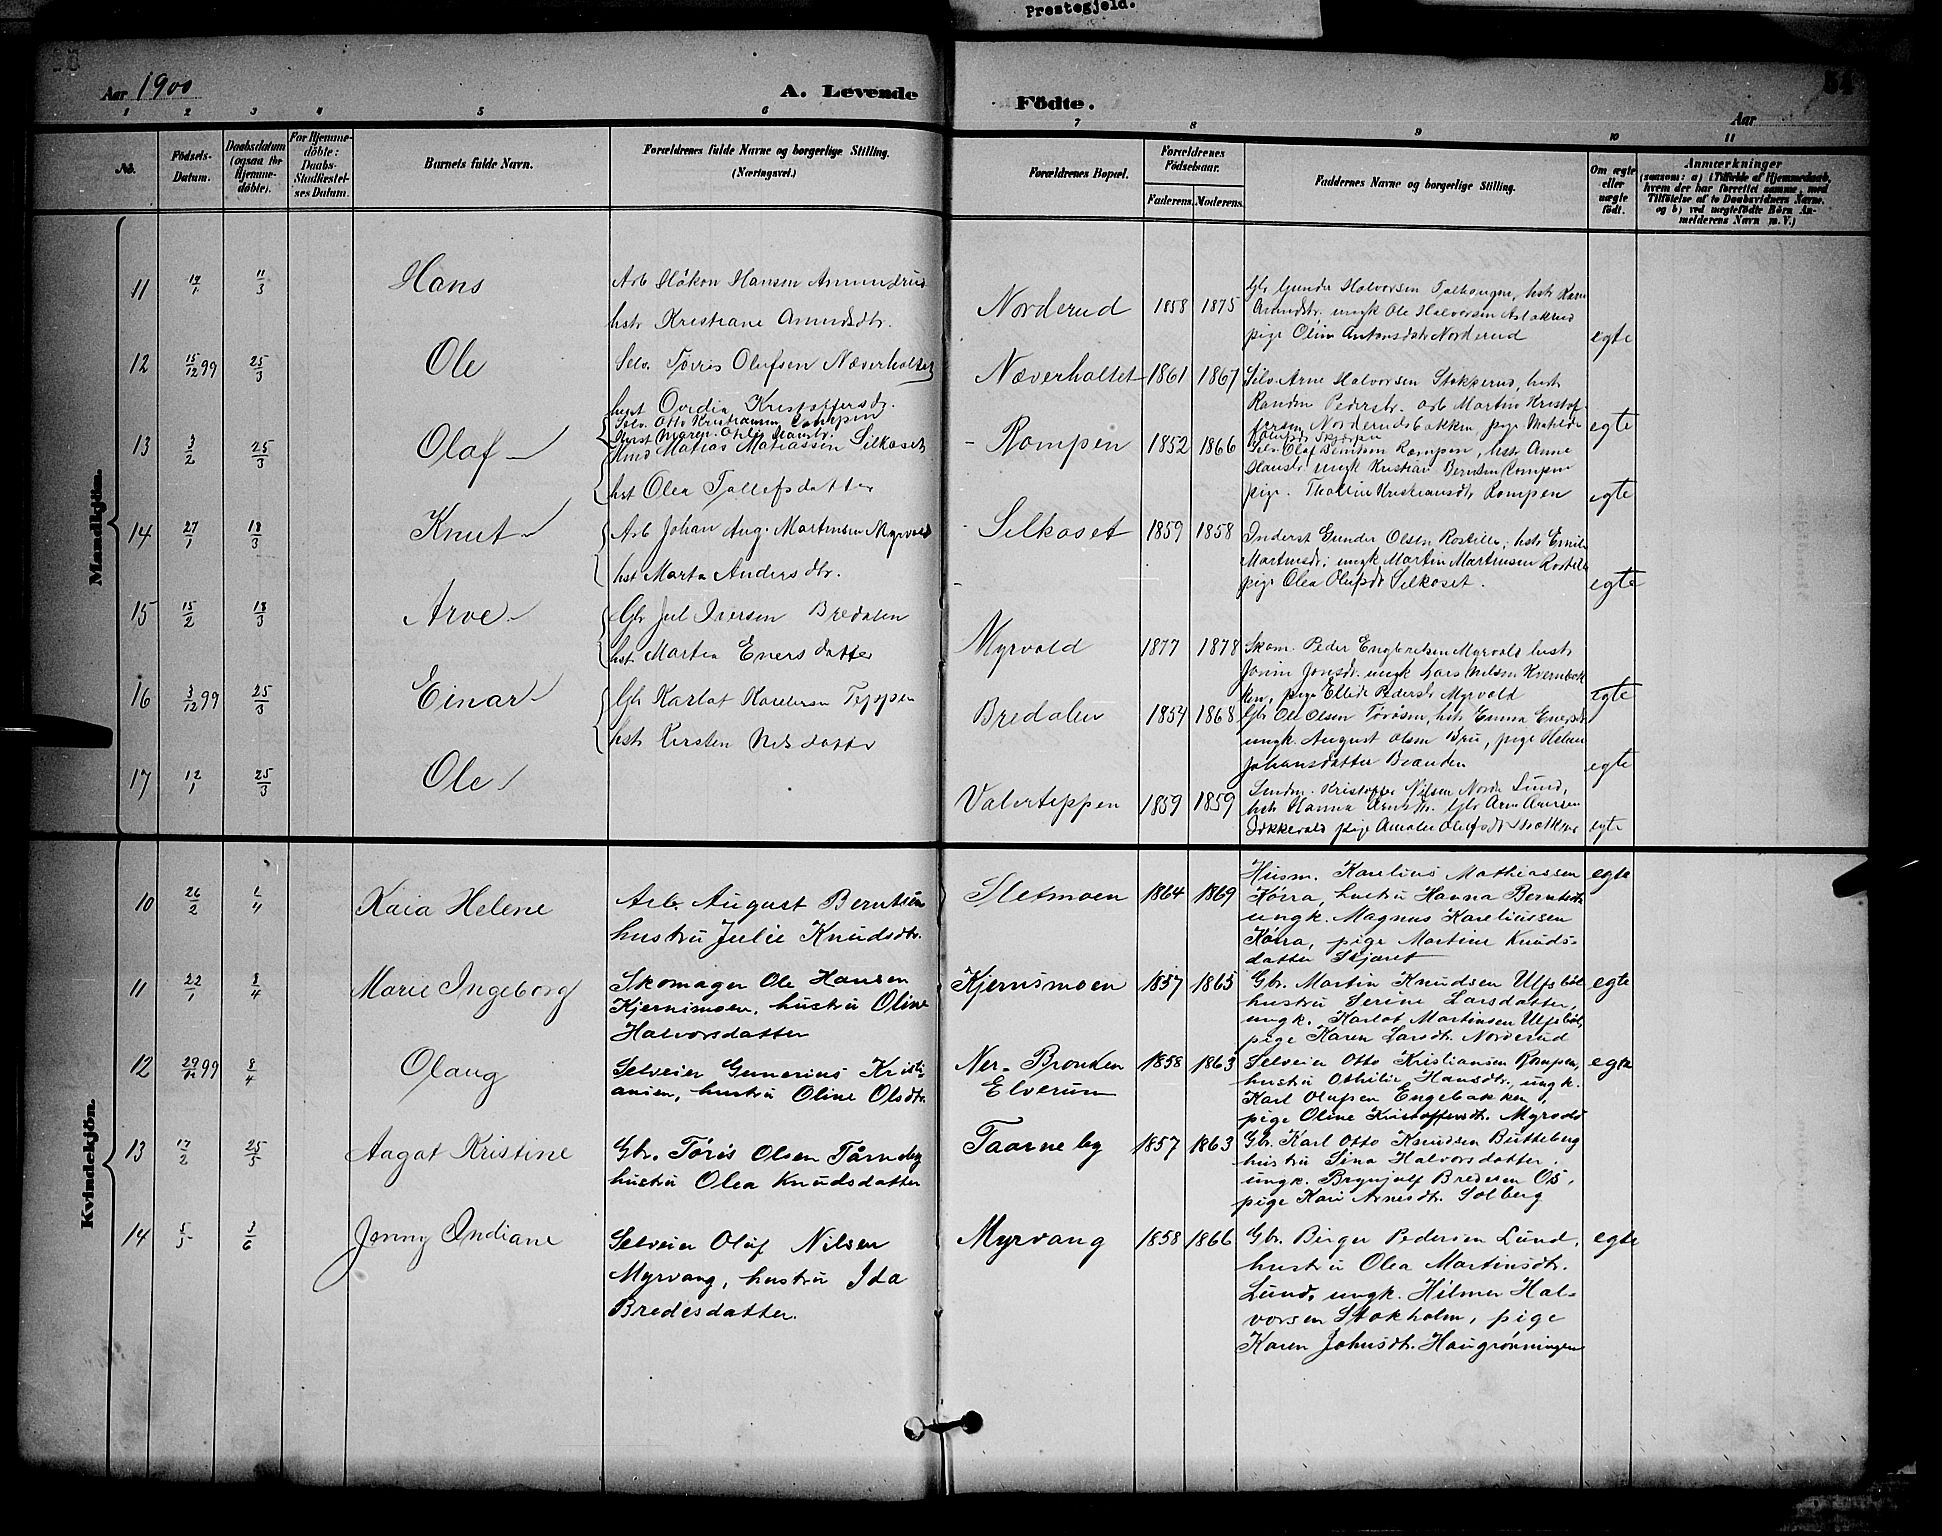 Prestegjeld.
Aar 1900
A. Levende Födte.
Aar
1 2 3 4 5 6 7 8 9 10 11
No.
Födsels-
Datum.
Daabsdatum
(ogsaa for
Hjemme-
döbte).
For Hjemme-
döbte:
Daabs-
Stadfæstel-
ses Datum.
Barnets fulde Navn.
Forældrenes fulde Navne og borgerlige Stilling.
(Næringsvei.)
Forældrenes Bopæl.
Forældrenes
Födselsaar.
Faderens. Moderens.
Faddernes Navne og borgerlige Stilling.
Om ægte
eller
uægte
født.
Anmærkninger
(saasom: a) i Tilfælde af Hjemmedaab,
hvem der har forrettet samme, med
Tilföielse af to Daabsvidners Navne,
og b) ved uægtefödte Börn An-
melderens Navn m. V.)
Mandkjön.
11
11/3
Hans
Arb Håkon Hansen Amundrud
hstr Kristiane Amundsdtr.
Norderud
1858 1875
Gbr Gunder Halvorsen
ungk Ole Halvorsen
pige Olive Antonsdtr Norderud
egte
12
15/12 99
25/3
Ole
Selv. Tøris Olufsen Næverholtet
hust Ovidia Kristoffersdr.
Næverholtet
1861 1867
Selv Arne Halvorsen Stokkerud, hstr
Randen Pedersdtr. arb Martin Kristof-
fersen Norderudsbakken pige Matilde
egte
13
3/2
25/3
Olaf
Selv. Otto Kristiansen Rompen
Hust Maren Othilie Hansdtr.
Rompen
1852 1866
Selv Olaf Berntsen Rompen, hstr Anne
Hansdr ungk Kristian Berntsen Rompen
pige. Thalline Kristiansdtr Rompen
egte
14
27/1
18/3
Knut
Husm Matias Matiassen Silkoset
hst Olea Tollefsdatter
Silkoset
1859 1858
Inderst Gunder Olsen hstr Emilie
Martinsdr; ungk Martin Martinsen
pige Olea Olufsdr Silkoset.
egte
15
15/2
18/3
Arve
Arb Johan Aug. Martinsen Myrvold
hst Marta Andersdtr.
Myrvold
1877 1878
Skom. Peder Engbretsen Myrvold hustr
Jonsdr. ungk Lars Nilsen Kvernbek
ken, pige Ellide Pedersdr Myrvold
egte
16
3/12 99
25/3
Einar
Gbr Jul Iversen Bredalen
hst. Martea Enersdatter
Bredalen
1854 1868
Gbr Ole Olsen Tøråsen, hstr Emma Enersdr
ungk. August Olsen Bru, pige Helene
Johansdatter Brænden
egte
17
12/1
25/3
Ole
Gbr Karlot Karelersen
hstr Kersten Nilsdatter
Valerteppen
1859 1859
Kristoffer Nilsen Nordre Lund,
hstr Hanna Gbr Arne
pige Amalie Olufsdr
egte
Kvindekjön.
10
26/2
1/4
Kaia Helene
Arb. August Berntsen
hustru Julie Knudsdtr.
Sletmoen
1864 1869
Husm. Karelius Mathiassen
Kørra, hustru Hanna Berntsdtr
ungk. Magnus Kareliussen
Kørra, pige Martine Knuds-
datter Skjæret
egte
11
22/1
8/4
Marie Ingeborg
Skomager Ole Hansen
Kjernsmoen, hustru Oline
Halvorsdatter
Kjernsmoen
1857 1865
Gbr. Martin Knudsen Ulfsbøl
hustru Serine Larsdatter,
ungk. Karlot Martinsen Ulfsbøl,
pige Karen Larsdtr Norderud
egte
12
29/12 99
8/4
Olaug
Selveier Gunerius Kristi-
ansen, hustru Oline Olsdtr
Ner-Bronken
Elverum
1858 1863
Selveier Otto Kristiansen Rompen,
hustru Othilie Hansdtr, ungk.
Karl Olufsen Engebakken,
pige Oline Kristoffersdtr. Myrvold
egte
13
17/2
25/5
Aagot Kristine
Gbr. Tøris Olsen Tårneby
hustru Olea Knudsdatter
Taarneby
1857 1863
Gbr. Karl Otto Knudsen Butteberg
hustru Sina Halvorsdatter.
ungk. Brynjulf Bredesen Os,
pige Kari Arnesdtr. Solberg
14
5/5
3/6
Jenny Indiane
Selveier Oluf Nilsen
Myrvang, hustru Ida
Bredesdatter.
Myrvang
1858 1866
Gbr. Birger Pedersen Lund,
hustru Olea Martinsdtr.
Lund, ungk. Hilmer Hal-
vorsen Stokholm, pige
Karen Johnsdtr. Haugrønningen
egte